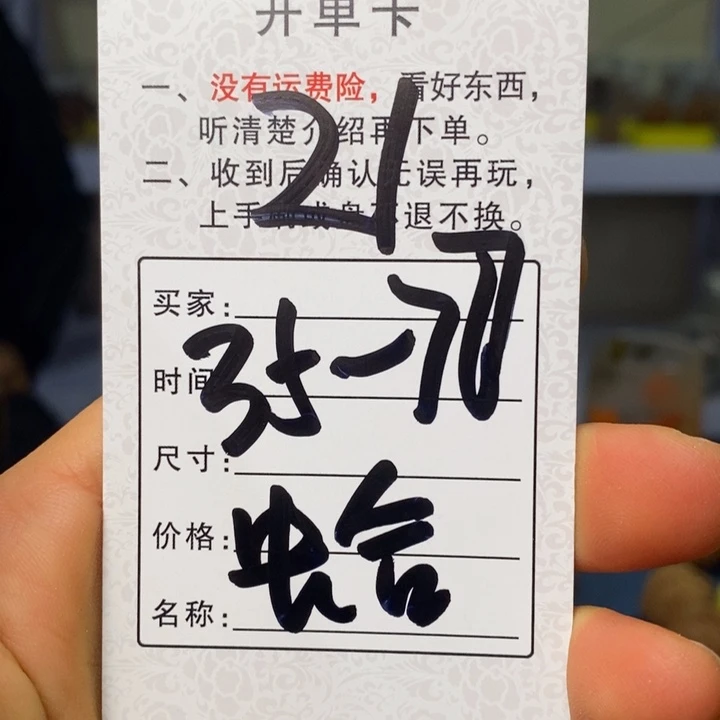 开单卡
一、没有运费险，看好东西，
听清楚介绍再下单。
二、收到后确认无误再玩，
上手刷或盘不退不换。
21
买家：
35-70
时间
尺寸：
价格：
名称：